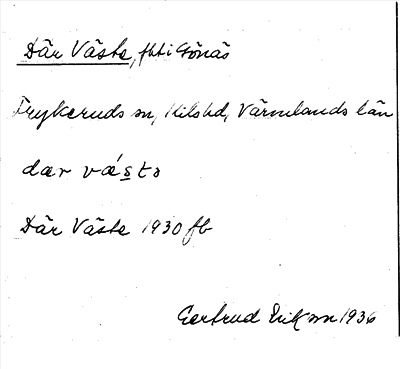 Där Väste, fbt i Gönäs
Frykeruds sn, Kils hd, Värmlands län
dær vǻstə
Där Väste 1930 fb
Gertrud Erikson 1936